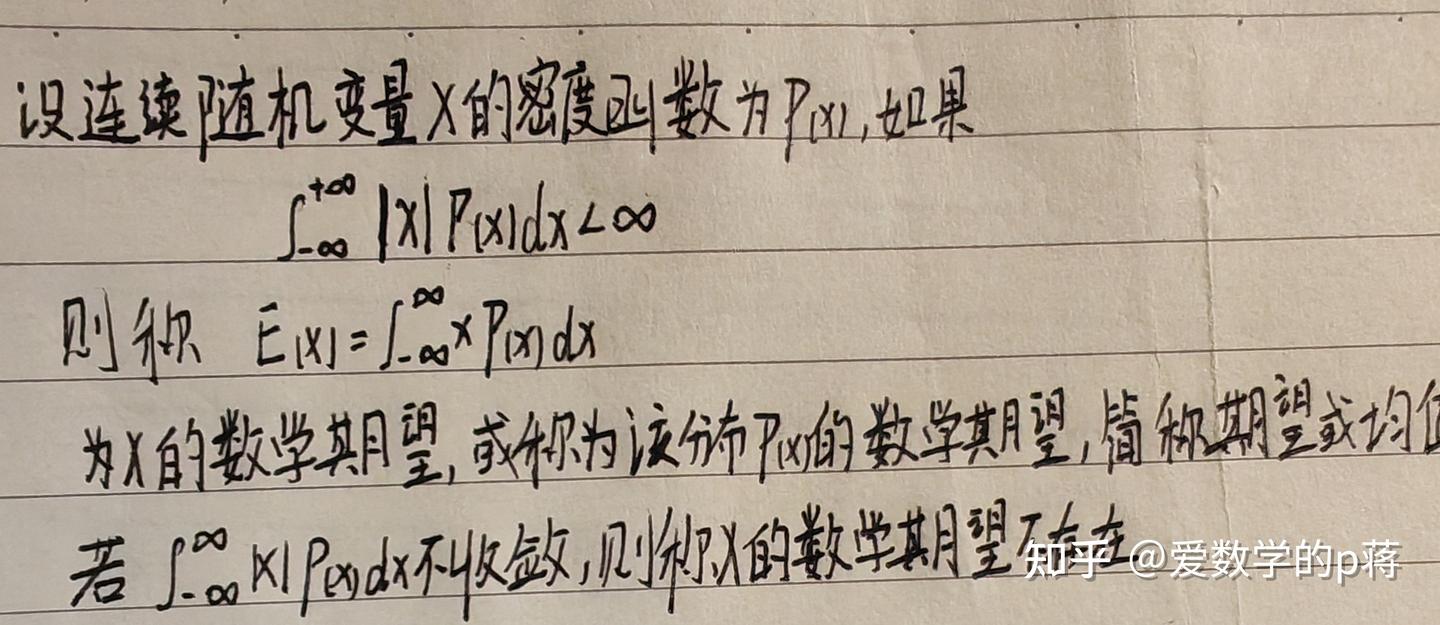 设连续随机变量X的密度函数为P(x),如果
∫_{-∞}^{+∞} |x| P(x)dx<∞
则称 E(X)=∫_{-∞}^{∞} x P(x)dx
为X的数学期望,或称为该分布P(x)的数学期望,简称期望或均值
若 ∫_{-∞}^{∞} |x| P(x)dx不收敛,则称X的数学期望不存在
知乎 @爱数学的p蒋